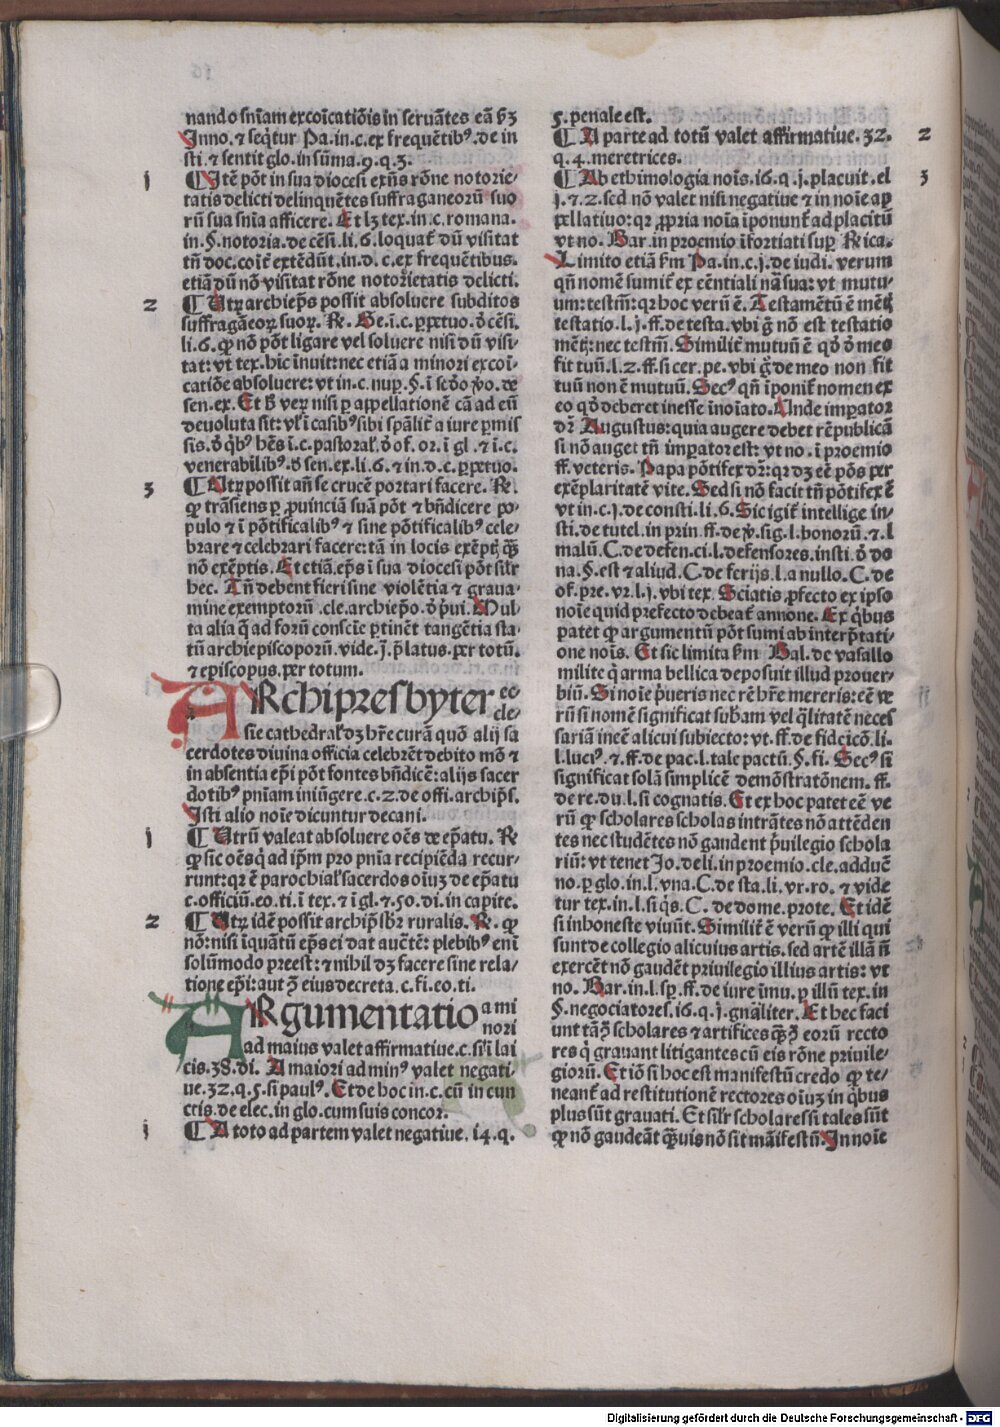 nando sniam excoicatiōis in seruātes eā b̄ꝫ
Inno. ⁊ seqr̄tur Pa. in. c. ex frequētibꝰ. de in
sti. ⁊ sentit glo. in sūma. 9. q. 3.
1 ¶ Itē pōt in sua diocesi exn̄s rōne notorie-
tatis delicti delinquētes suffraganeorū suo
rū sua snīa afficere. Et lꝫ tex. in. c. romana.
in. §. notoria. de cēsi. li. 6. loquat̄ dū visitat
tn̄ doc. coīt̄ extēdūt. in. d. c. ex frequētibus.
etiā dū nō visitat rōne notorietatis delicti.
2 ¶ Utꝝ archiep̄s possit absoluere subditos
suffragāeoꝝ suoꝝ. R. Ge. ī. c. ꝑpetuo. ō cēsi.
li. 6. ꝙ nō pōt ligare vel soluere nisi dū visi-
tat: vt tex. hic īnuit: nec etiā a minori excoī-
catiōe absoluere: vt in. c. nuꝑ. §. ī scd̄o v̄o. de
sen. ex. Et h̄ veꝝ nisi ꝑ appellationē cā ad eū
deuoluta sit: vl̓ ī casibꝰ sibi spālit̄ a iure ꝑmis
sis. ō q̇bꝰ hēs ī. c. pastoral̓. ō of. or. ī gl. ⁊ ī. c.
venerabilibꝰ. ō sen. ex. li. 6. ⁊ in. d. c. ꝑpetuo.
3 ¶ Utꝝ possit an̄ se crucē portari facere. R.
ꝙ trāsiens ꝑ ꝓuinciā suā pōt ⁊ bn̄dicere po-
pulo ⁊ ī pōtificalibꝰ ⁊ sine pōtificalibꝰ cele-
brare ⁊ celebrari facere: tā in locis exēptꝭ q̄ꝫ
nō exēptis. Et etiā. ep̄s ī sua diocesi pōt sil̓r
hec. Tn̄ debent fieri sine violētia ⁊ graua-
mine exemptorū. cle. archiep̄o. ō p̄ui. Mul
ta alia q̄ ad forū consciē ꝑtinēt tangētia sta-
tū archiepiscoporū. vide. j. p̄latus. per totū.
⁊ episcopus. per totum.
ARchipresbyter ec-
cle-
sie cathedral̓ dꝫ hr̄e curā quō alij sa
cerdotes diuina officia celebrēt debito mō ⁊
in absentia ep̄i pōt fontes bn̄dicē: alijs sacer
dotibꝰ pniam iniūgere. c. 2. de offi. archip̄s.
Isti alio noīe dicuntur decani.
1 ¶ Utrū valeat absoluere oēs de ep̄atu. R
ꝙ sic oēs q̇ ad ip̄m pro pnīa recipiēda recur-
runt: qr ē parochial̓ sacerdos oīuꝫ de ep̄atu
c. officiū. eo. ti. ī tex. ⁊ ī gl. ⁊ 50. di. in capite.
2 ¶ Utꝝ idē possit archip̄sbr̄ ruralis. R. ꝙ
nō: nisi īquātū ep̄s ei dat auctē: plebibꝰ enī
solūmodo preest: ⁊ nihil dꝫ facere sine rela-
tione ep̄i: aut ꝫ eius decreta. c. fi. eo. ti.
ARgumentatio a mi
nori
ad maius valet affirmatiue. c. si ī lai
cis. 38. di. A maiori ad minꝰ valet negati-
ue. 32. q. 5. si paulꝰ. Et de hoc in. c. cū in cun
ctis. de elec. in glo. cum suis concor.
1 ¶ A toto ad partem valet negatiue. 14. q.
5. penale est.
¶ A parte ad totū valet affirmatiue. 32. 2
q. 4. meretrices.
¶ Ab ethimologia noīs. 16. q. j. placuit. el 3
j. ⁊ 2. sed nō valet nisi negatiue ⁊ in noīe ap
pellatiuo: qꝛ ꝓpria noīa īponunt̄ ad placitū
vt no. Bar. in proemio īfortiati suꝑ R ica.
Limito etiā ẜm Pa. in. c. j. de iudi. verum
qn̄ nomē sumit̄ ex cēntiali nā sua: vt mutu-
um: testm̄: qꝛ hoc verū ē. Testamētū ē mētꝭ
testatio. l. j. ff. de testa. vbi g̊ nō est testatio
mētꝭ: nec testm̄. Similit̄ mutuū ē qd̓ ō meo
fit tuū. l. 2. ff. si cer. pe. vbi g̊ de meo non fit
tuū non ē mutuū. Secꝰ qn̄ īponit̄ nomen ex
eo qd̓ deberet inesse īnoīato. Unde imꝑator
dr̄. Augustus: quia augere debet rēpublicā
si nō auget tn̄ imꝑator est: vt no. ī proemio
ff. veteris. Papa pōtifex dr̄: qꝛ dꝫ eē pōs per
exēplaritatē vite. Sed si nō facit tn̄ pōtifex ē
vt in. c. j. de consti. li. 6. Sic igit̄ intellige in-
sti. de tutel. in prin. ff. de v̓. sig. l. bonorū. ⁊ l.
malū. C. de defen. ci. l. defensores. insti. ō do
na. §. est ⁊ aliud. C. de ferijs. l. a nullo. C. de
of. pre. vr. l. j. vbi tex. Sciatis ꝓfecto ex ipso
noīe quid prefecto debeat̄ annone. Ex q̇bus
patet ꝙ argumentū pōt sumi ab interp̄tati-
one noīs. Et sic limita ẜm Bal. de vasallo
milite q̇ arma bellica deposuit illud prouer-
biū. Si noīe p̄ueris nec rē hr̄e mereris: eē ve
rū si nomē significat subam̄ vel q̄litatē neces
sariā ineē alicui subiecto: vt. ff. de fideicō. li.
l. luciꝰ. ⁊ ff. de pac. l. tale pactū. §. fi. Secꝰ si
significat solā simplicē demōstratōnem. ff.
de re. du. l. si cognatis. Et ex hoc patet eē ve
rū ꝙ scholares scholas intrātes nō attēden
tes nec studētes nō gaudent p̄uilegio schola
riū: vt tenet Jo. de li. in proemio. cle. adduē
no. ꝑ glo. in. l. vna. C. de sta. li. vr. ro. ⁊ vide
tur tex. in. l. si q̇s. C. de dome. prote. Et idē
si inhoneste viuūt. Similit̄ ē verū ꝙ illi qui
sunt de collegio alicuius artis. sed artē illā n̄
exercēt nō gaudēt priuilegio illius artis: vt
no. Bar. in. l. sꝑ. ff. de iure īmu. ꝑ illū tex. in
§. negociatores. 16. q. j. gnāliter. Et hec faci
unt tā ꝯ̄ scholares ⁊ artifices q̄ꝫ ꝯ̄ eorū recto
res q̇ grauant litigantes cū eis rōne priuile-
giorū. Et iō si hoc est manifestū credo ꝙ te-
neant̄ ad restitutionē rectores oīuꝫ in q̇bus
plus sūt grauati. Et sil̓r scholares si tales sūt
ꝙ nō gaudeāt q̄ꝫuis nō sit māifestū. In noīe
Digitalisierung gefördert durch die Deutsche Forschungsgemeinschaft - DFG